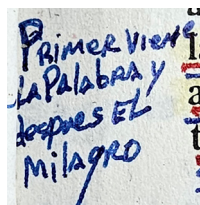 Primer viene
la Palabra y
despues El
Milagro